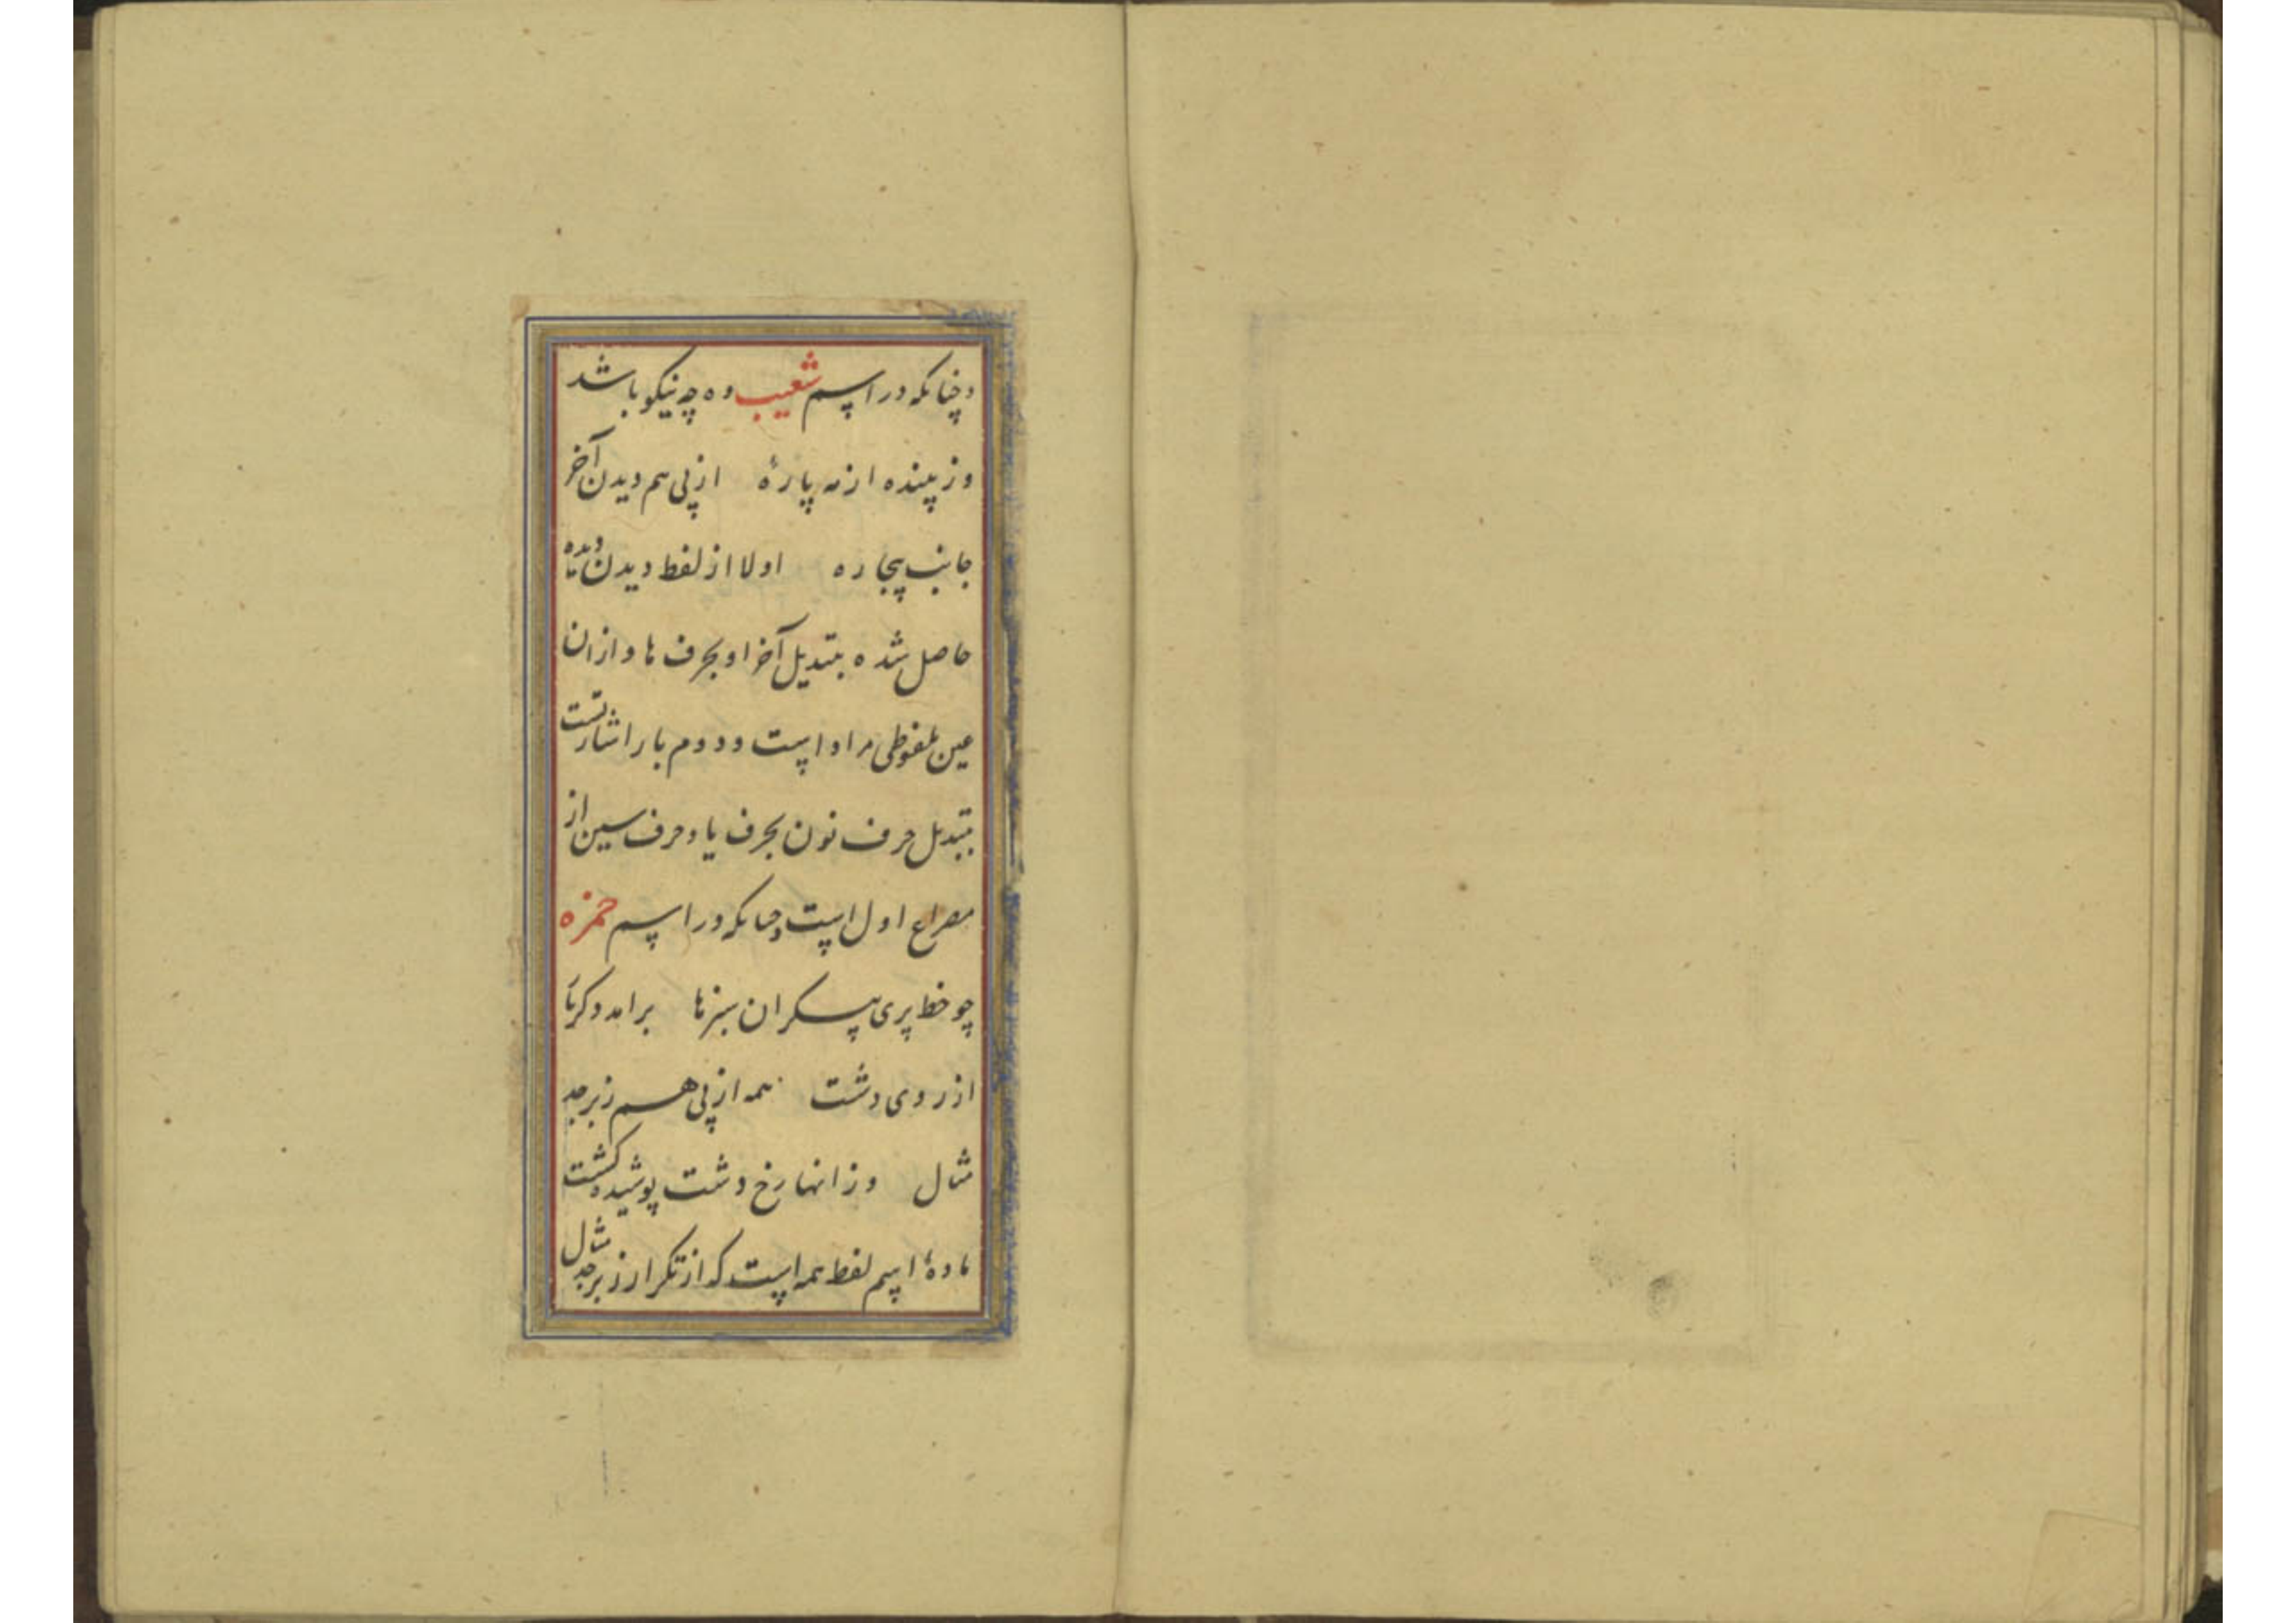 و چنانکه در اسم شعیب وه چه نیکو باشد
وز پینده از مه پارهٔ از پی هم دیدن آخر
جانب پیچاره اولا از لفظ دیدن دیده
حاصل شده بتبدیل آخر او بحرف ها و ازان
عین ملفوظی مراد است و دوم بار اشارتست
بتبدیل حرف نون بحرف یا و حرف سین از
مصراع اول است و چنانکه در اسم حمزه
چو خط پری پیکران سبزها برامد دگر
از روی دشت همه از پی هم زبرجد
مثال وزانها رخ دشت پوشیده گشت
مادهٔ اسم لفظ همه است که از تکرار زبرجد مثال